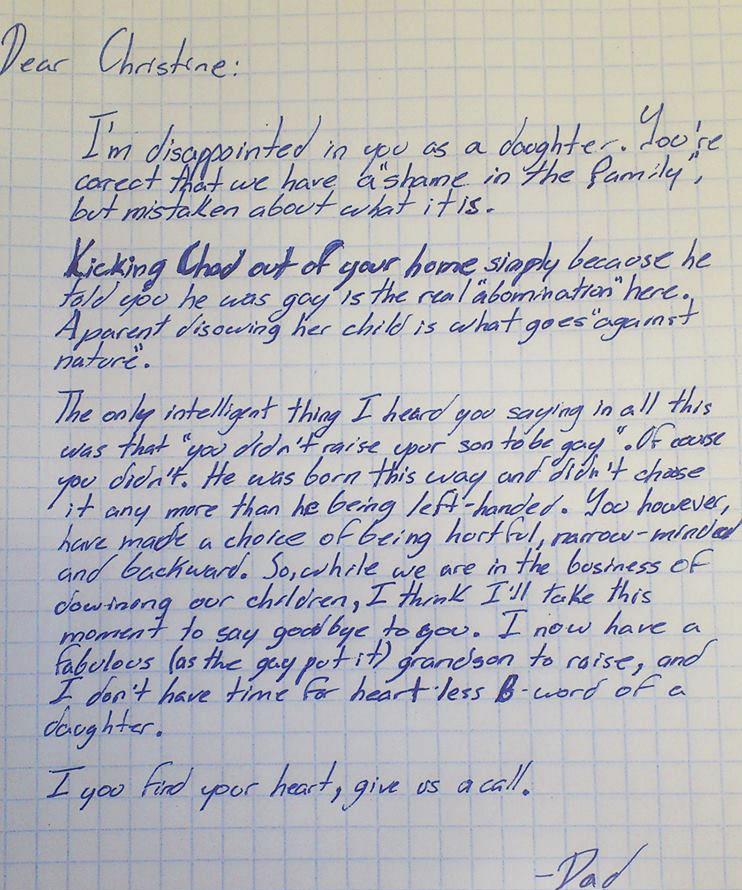 Dear Christine:
I'm disappointed in you as a daughter. You're
corect that we have a "shame in the family",
but mistaken about what it is.
Kicking Chad out of your home simply because he
told you he was gay is the real "abomination" here.
A parent disowing her child is what goes "against
nature".
The only intelligent thing I heard you saying in all this
was that "you didn't raise your son to be gay". Of course
you didn't. He was born this way and didn't choose
it any more than he being left-handed. You however,
have made a choice of being hurtful, narrow-minded
and backward. So, while we are in the business of
dowinong our children, I think I'll take this
moment to say goodbye to you. I now have a
fabulous (as the gay put it) grandson to raise, and
I don't have time for heart-less B-word of a
daughter.
I you find your heart, give us a call.
-Dad